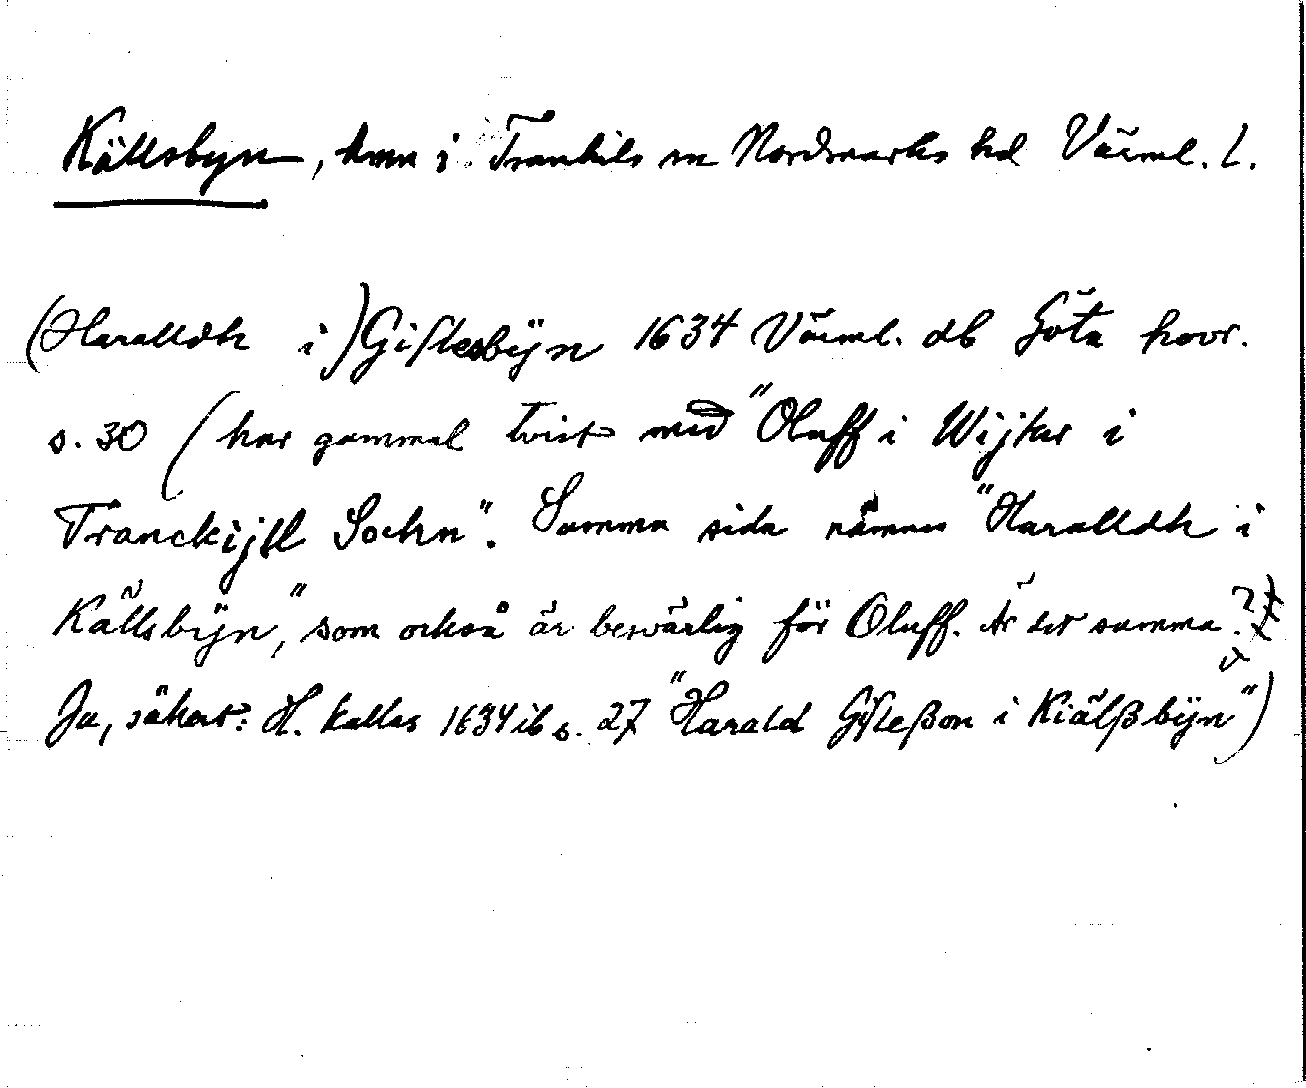 Källsbyn, hmn i Trankils sn Nordmarks hd Värml. l.
(Haralldh i) Gislesbÿn 1634 Värml. db Göta hovr.
s. 30 (har gammal tvist med "Oluff i Wijker i
Tranckijll Sockn". Samma sida nämnes "Haralldh i
Källsbÿn," som också är besvärlig för Oluff. Är det samma?
Ja, säkert: H. kallas 1634 ib s. 27 "Harald Gÿsleßon i Kiälßbÿn")